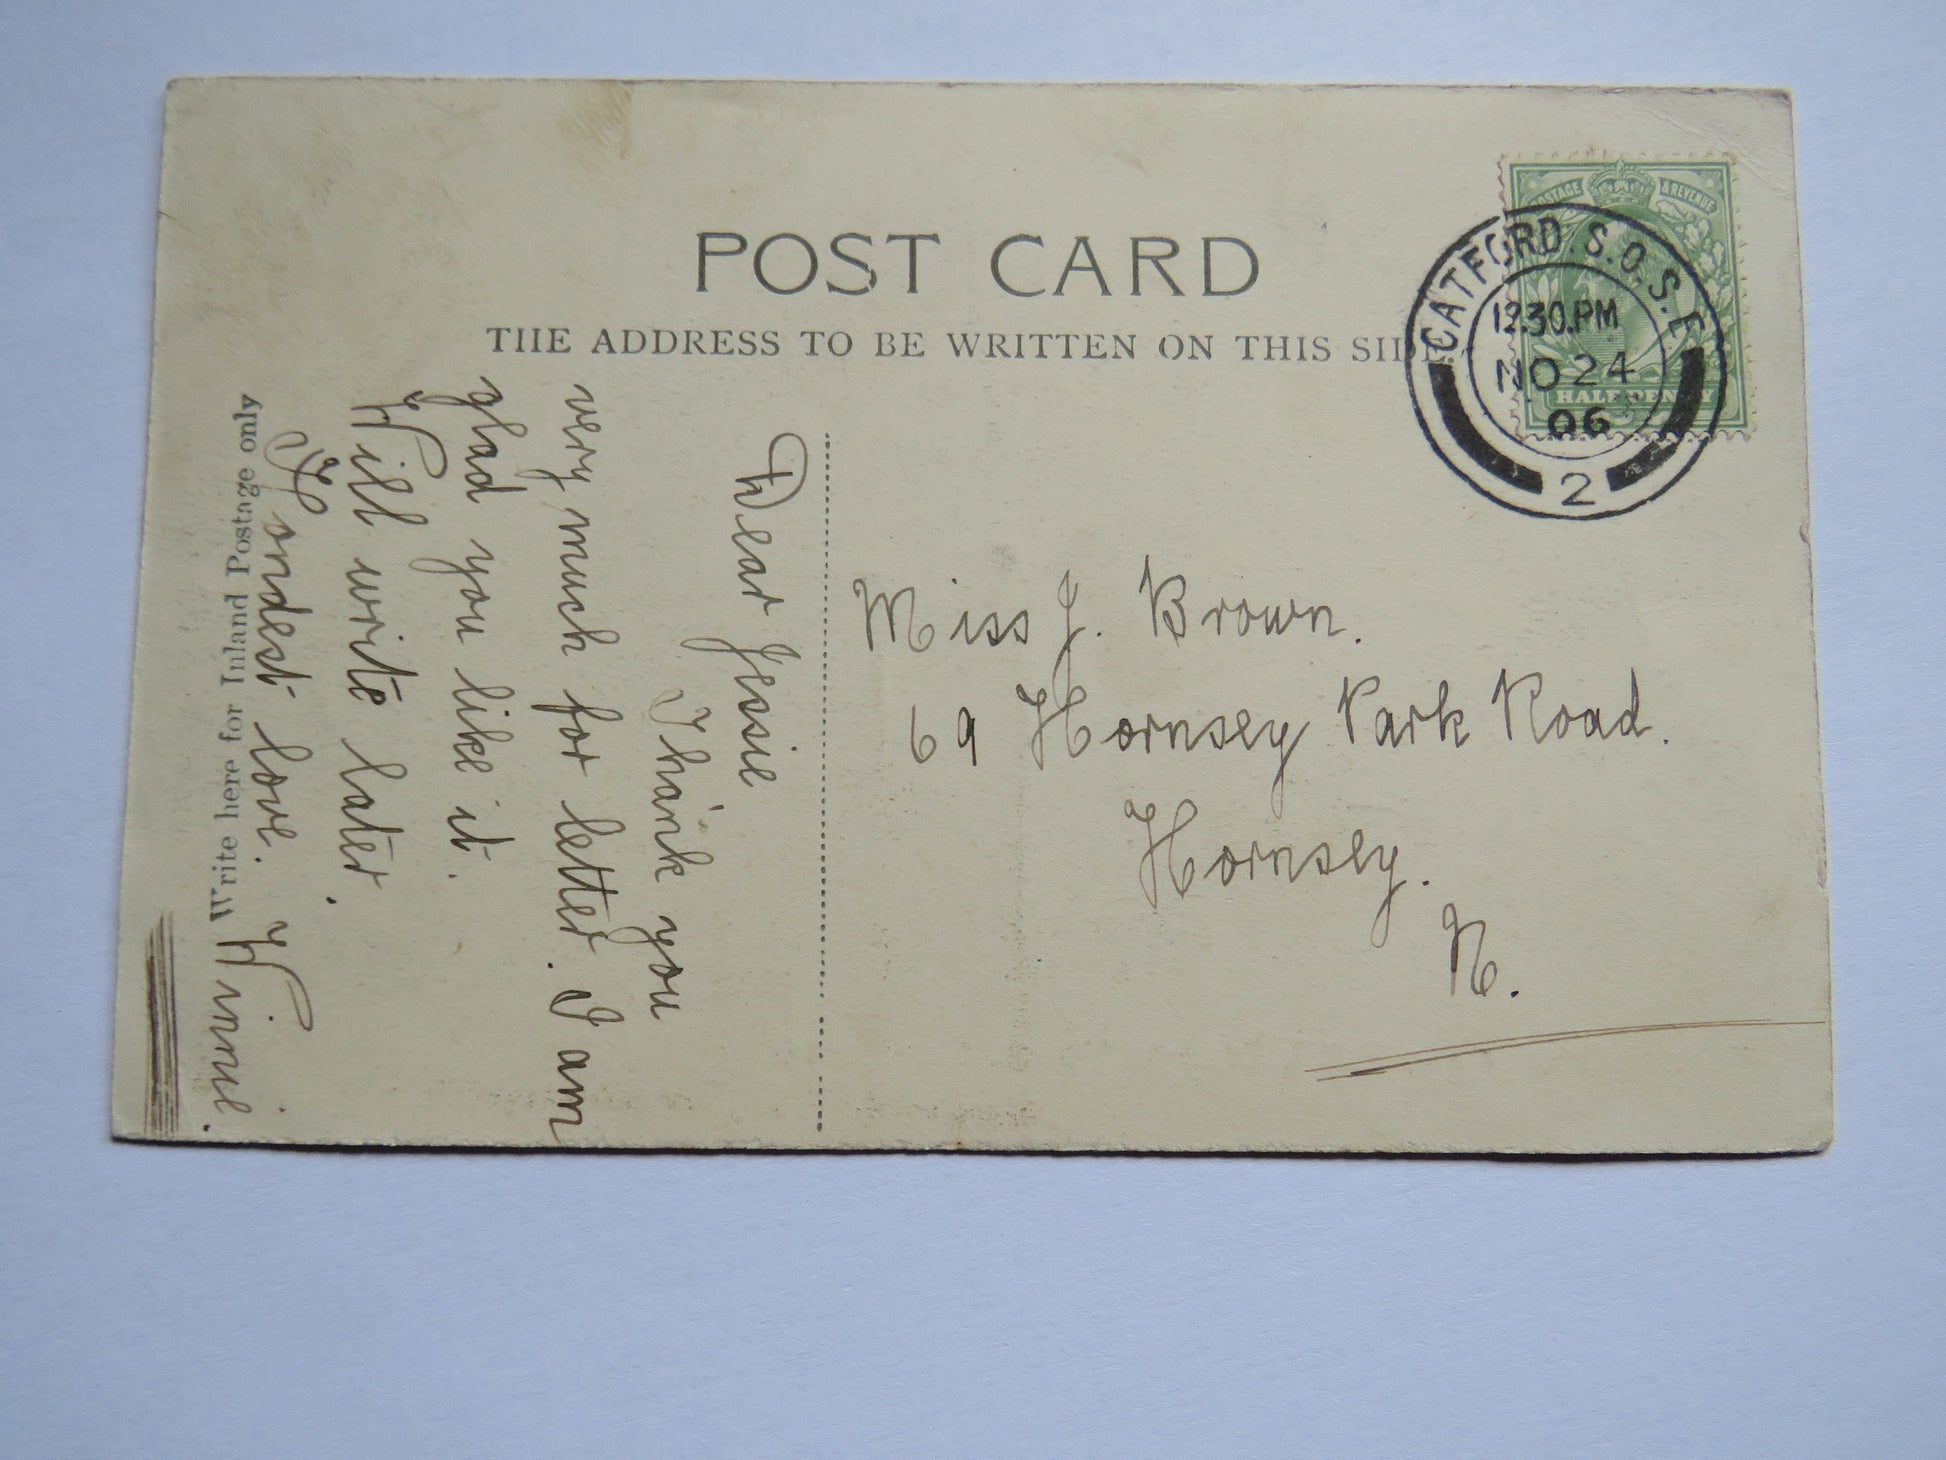 POST CARD
THE ADDRESS TO BE WRITTEN ON THIS SIDE.
POSTAGE & REVENUE
HALFPENNY
CATFORD.S.O.S.E
12.30.PM
NO 24
06
2
Write here for Inland Postage only
Dear Jessie
I thank you
very much for letter. I am
glad you like it.
Will write later.
Fondest love.
Winnie.
Miss J. Brown.
69 Hornsey Park Road.
Hornsey.
N.